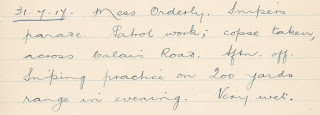 31.7.17. Mess Orderly. Snipers
parade. Patrol work; copse taken,
across Calais Road. Aftn. off.
Sniping practice on 200 yards
range in evening. Very wet.